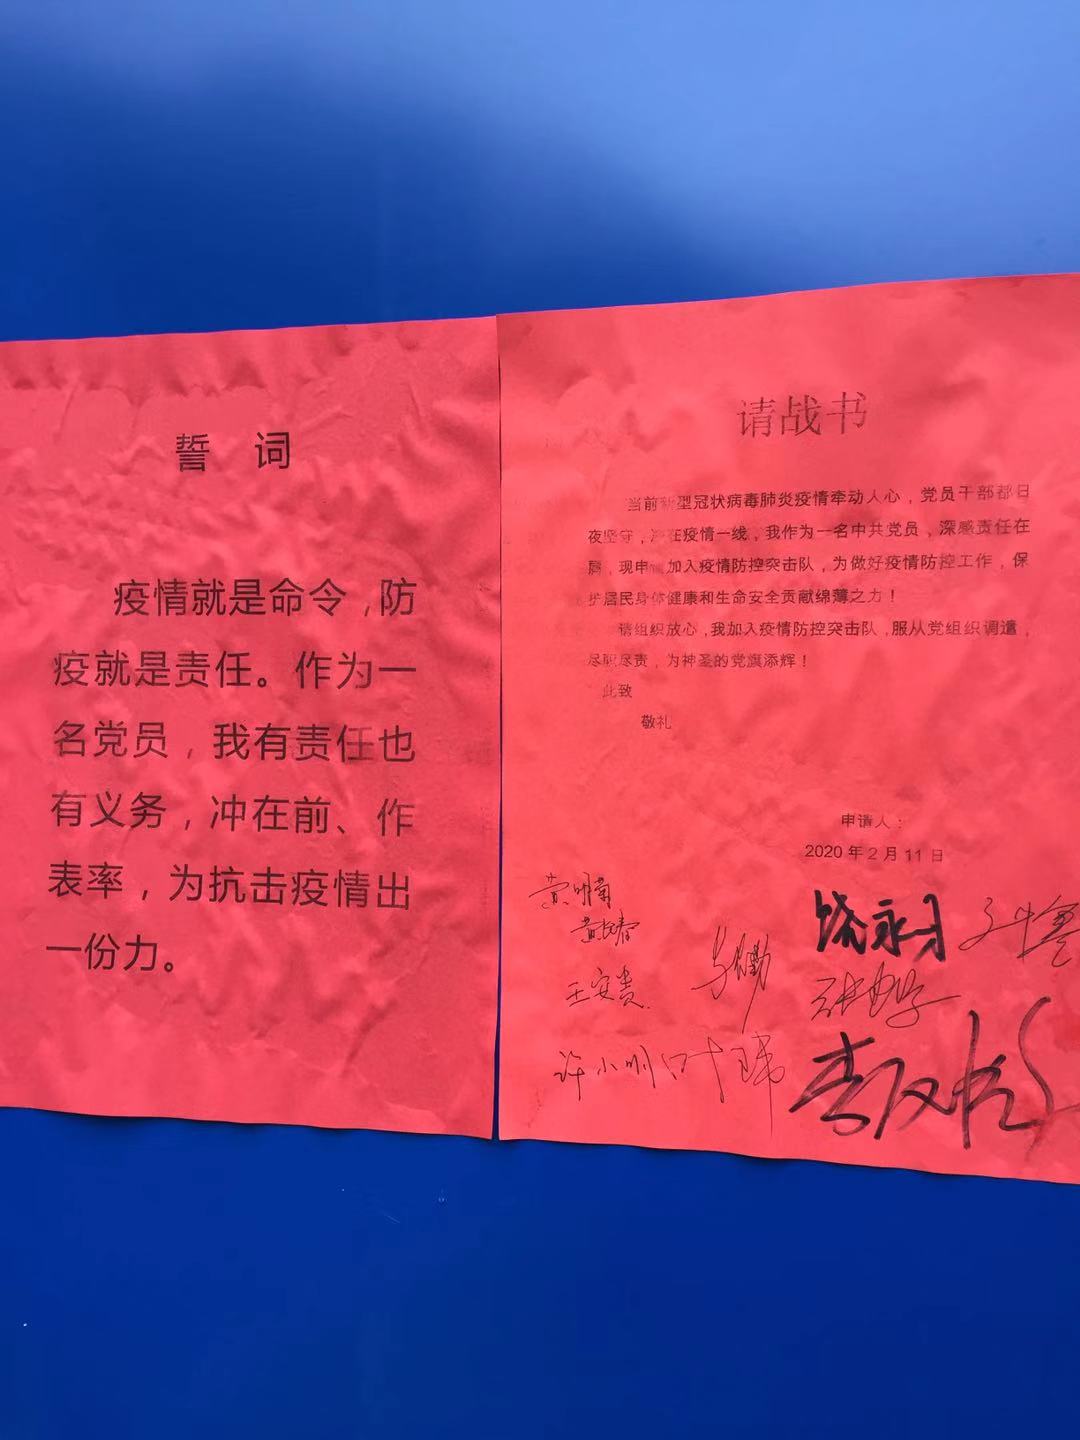 誓 词
疫情就是命令，防
疫就是责任。作为一
名党员，我有责任也
有义务，冲在前、作
表率，为抗击疫情出
一份力。
请战书
当前新型冠状病毒肺炎疫情牵动人心，党员干部都日
夜坚守，冲在疫情一线，我作为一名中共党员，深感责任在
肩，现申请加入疫情防控突击队，为做好疫情防控工作，保
护居民身体健康和生命安全贡献绵薄之力！
请组织放心，我加入疫情防控突击队，服从党组织调遣，
尽职尽责，为神圣的党旗添辉！
此致
敬礼
申请人：
2020 年 2 月 11 日
黄明菊
王安贵
许小明 叶玮